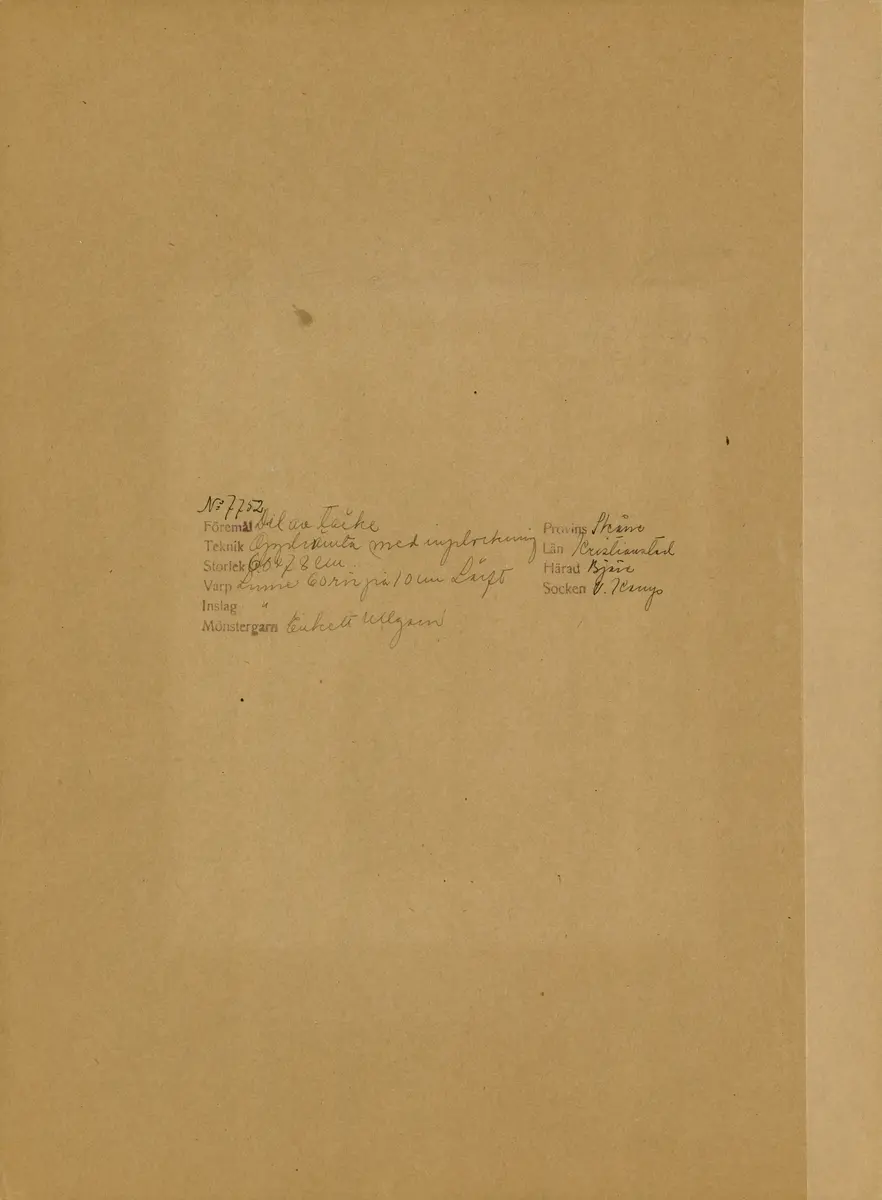 No 7752
Föremål Del av Täcke
Teknik Opphämta med inplockning
Storlek 60 x 78 cm
Varp Linne 60 rör på 10 cm Lärft
Inslag "
Mönstergarn Enkelt Ullgarn
Provins Skåne
Län Kristianstad
Härad Bjäre
Socken V. Karup